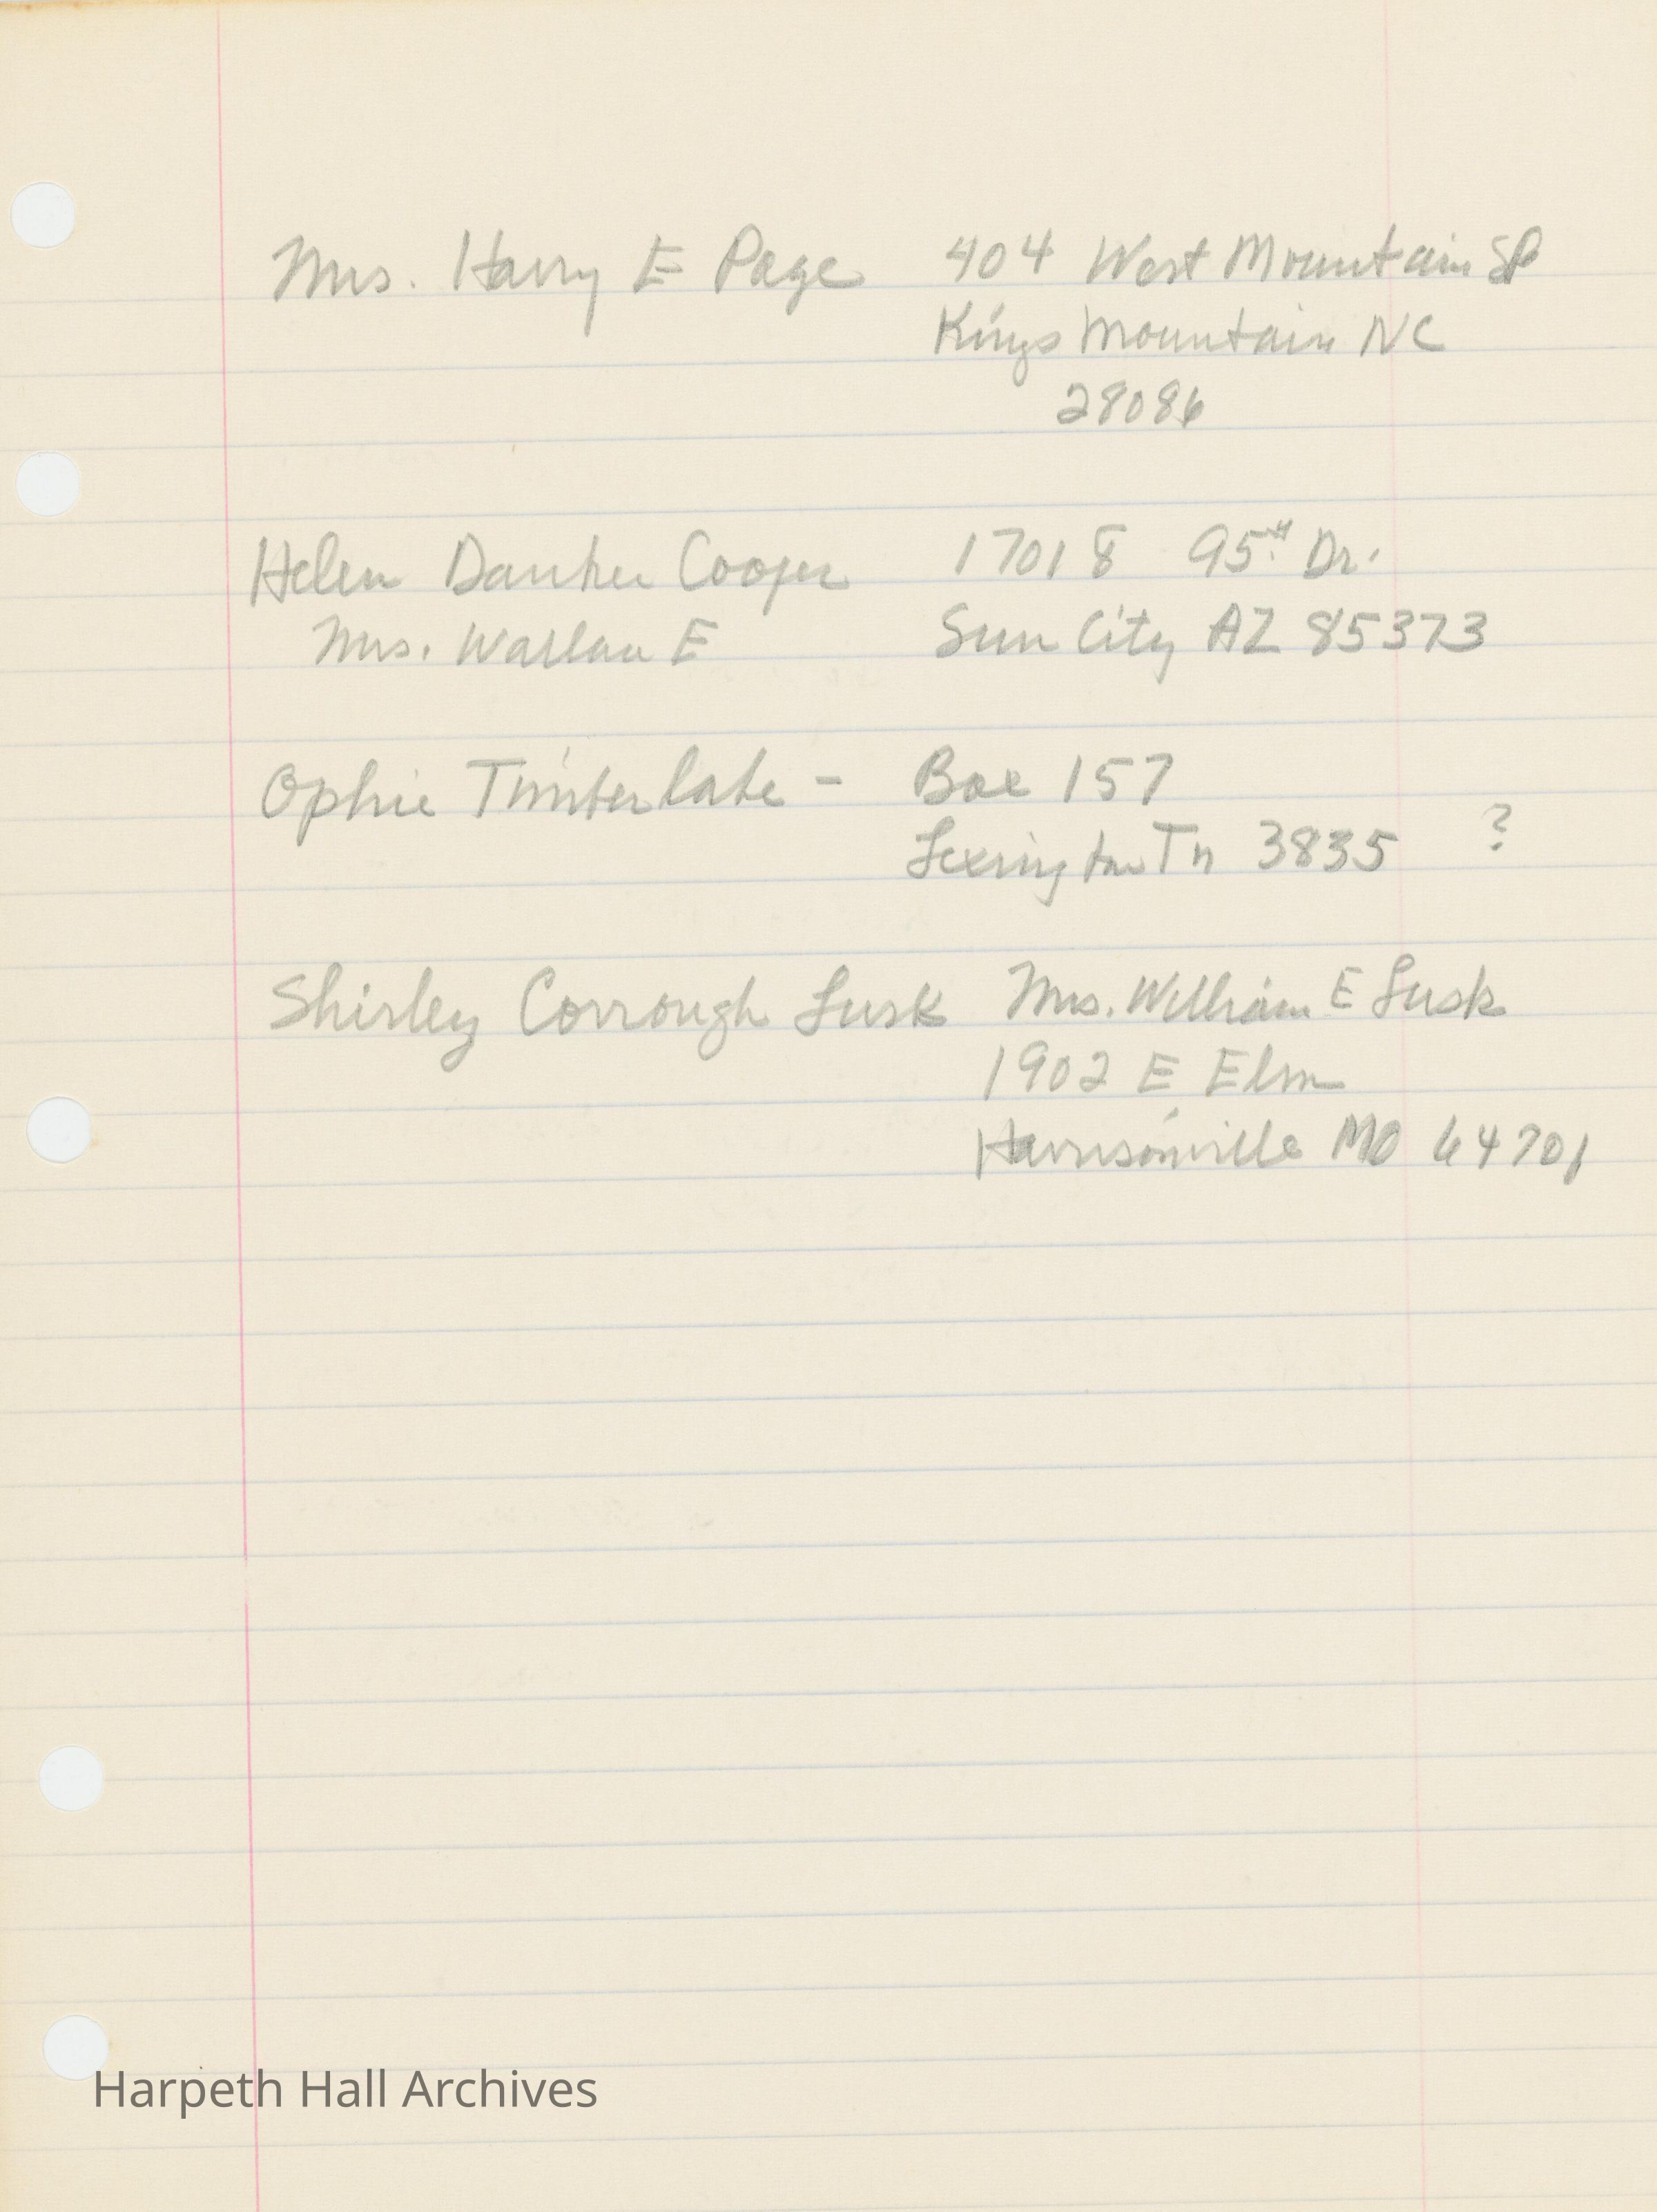 Mrs. Harry E Page 404 West Mountain St
Kings Mountain NC
28086
Helen Danker Cooper 17018 95th Dr.
Mrs. Wallace E Sun City AZ 85373
Ophie Timberlake - Box 157
Lexington Tn 3835 ?
Shirley Corrough Lusk Mrs. William E Lusk
1902 E Elm
Harrisonville MO 64701
Harpeth Hall Archives